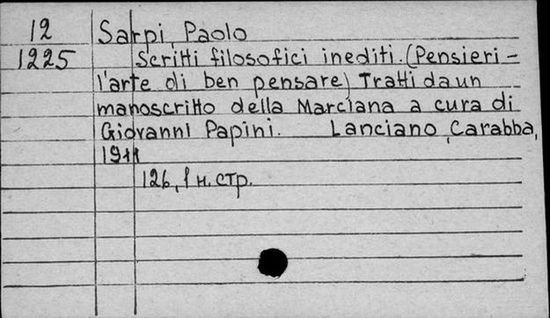 12 Sarpi, Paolo
1225 Scritti filosofici inediti. (Pensieri -
l'arte di ben pensare) Tratti da un
manoscritto della Marciana a cura di
Giovanni Papini. Lanciano, Carabba,
1911
126, 1 н. стр.